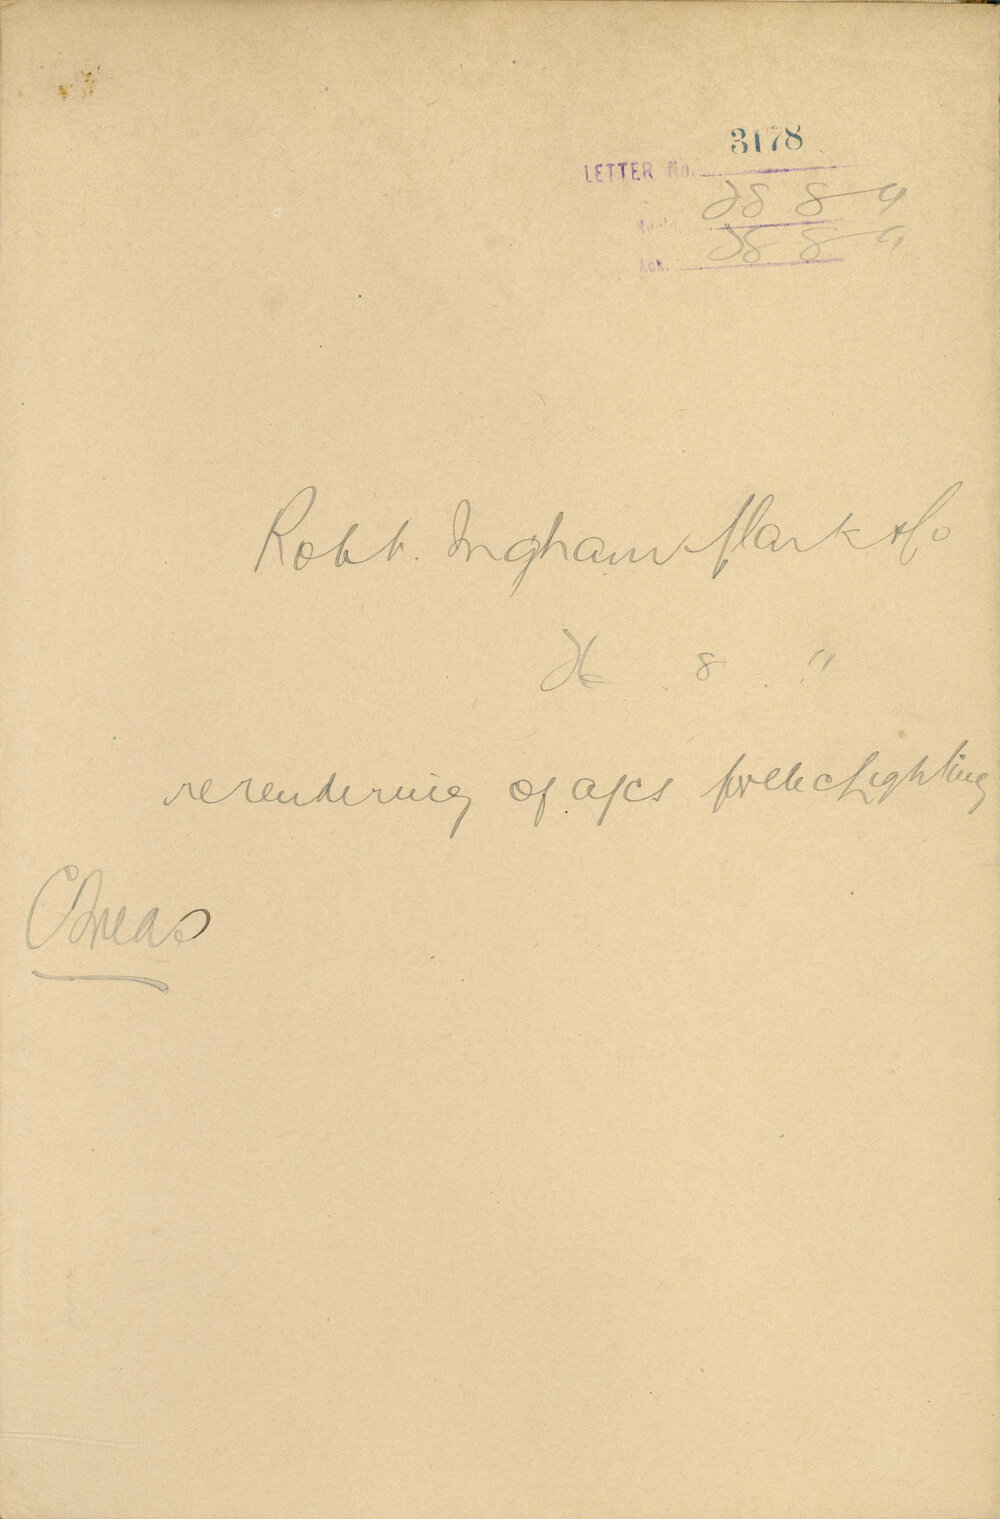 3178
LETTER No.
Rec'd. 28 8 09
Ack. 28 8 09
Robt. Ingham Clark & Co
26 . 8 . "
re rendering of a/cs for elec Lighting